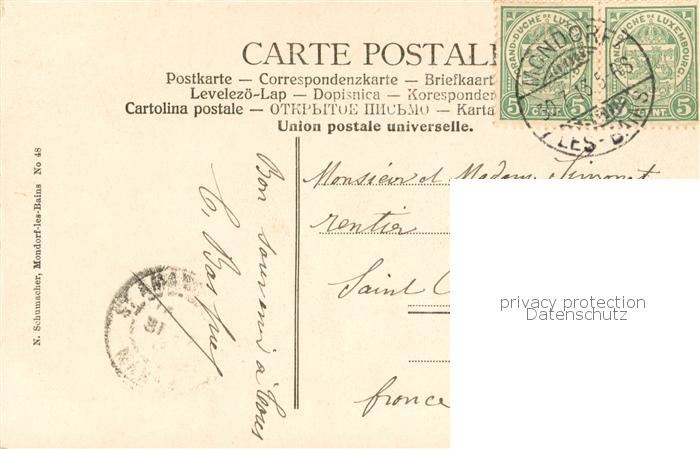 CARTE POSTALE
Postkarte — Correspondenzkarte — Briefkaart
Levelező-Lap — Dopisnica — Korespondenz
Cartolina postale — ОТКРЫТОЕ ПИСЬМО — Karta
Union postale universelle.
GRAND-DUCHÉ DE LUXEMBOURG
5 CENT. 5
GRAND-DUCHÉ DE LUXEMBOURG.
5 CENT. 5
MONDORF
LES-BAINS
N. Schumacher, Mondorf-les-Bains No 48
Bon souvenir à tous
C.
ST. AMAND
Monsieur et Madame Simonet
rentier
Saint
france
privacy protection
Datenschutz